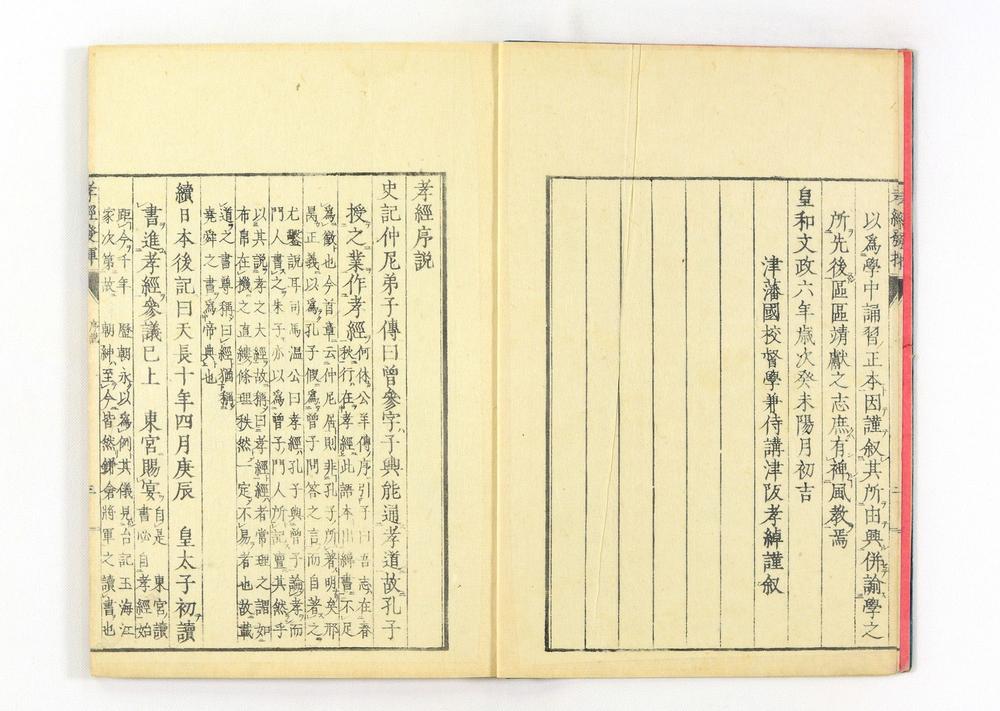 以爲學中誦習正本因謹叙其所由興併諭學之
所先後區區靖獻之志庶有裨風教焉
皇和文政六年歲次癸未陽月初吉
津藩國校督學兼侍講津阪孝綽謹叙
孝經序説
史記仲尼弟子傳曰曾參字子輿能通孝道故孔子
授之業作孝經
何休公羊傳序引子曰吾志在春
秋行在孝經此語本出緯書不足
爲徵也今首章云仲尼居則非孔子所著明矣邢
昺正義以爲孔子假爲曾子問答之言而自著之
尤鑿説耳司馬温公曰孝經孔子與曾子論孝而
門人書之朱子亦以爲曾子門人所記蠹其然乎
以其説孝之大經故稱曰孝經經者常理之謂如
布帛在機之直縷條理秩然一定不易者也故載
道之書尊稱曰經猶稱
堯舜之書爲帝典也
續日本後記曰天長十年四月庚辰 皇太子初讀
書進孝經參議已上 東宮賜宴
自是 東宮讀
書必自孝經始
距今千年 歷朝永以爲例其儀見台記玉海江
家次第故 朝紳至今皆然鎌倉將軍之讀書也
孝經發揮 序説